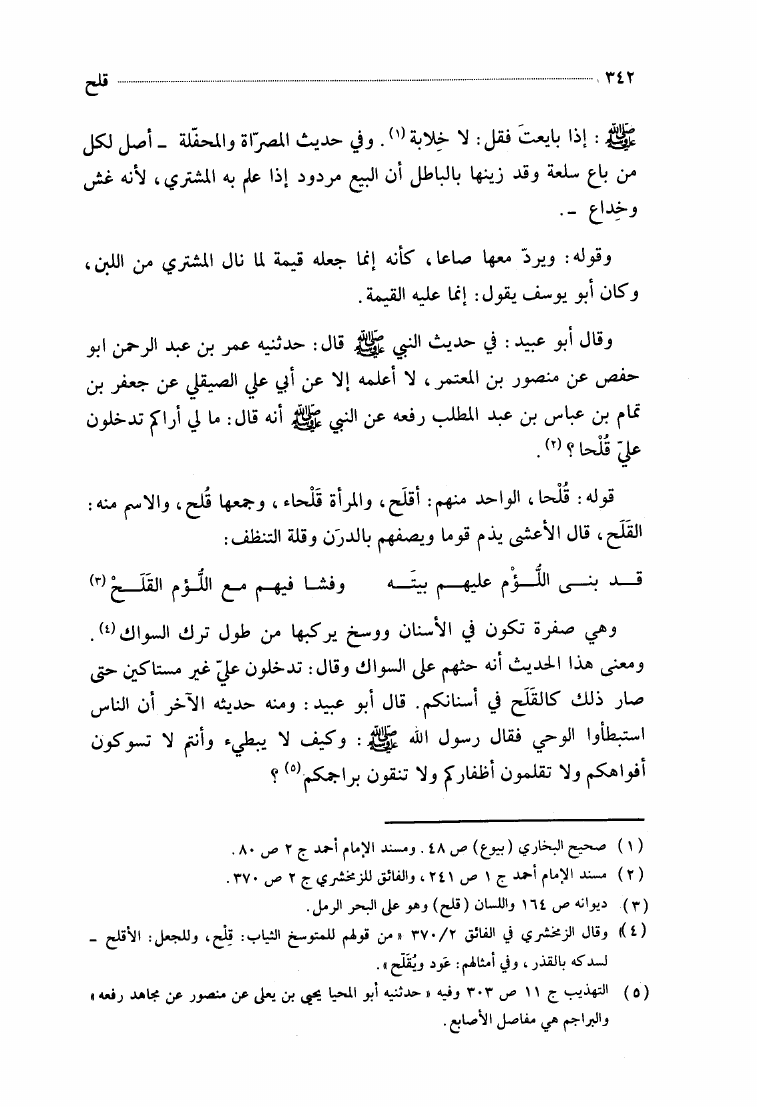 ٣٤٢ قلح
ﷺ: إذا بايعتَ فقل: لا خِلابة(١). وفي حديث المصرّاة والمحفّلة - أصل لكل
من باع سلعة وقد زينها بالباطل أن البيع مردود إذا علم به المشتري، لأنه غش
وخِداع -.
وقوله: ويردّ معها صاعا، كأنه إنما جعله قيمة لما نال المشتري من اللبن،
وكان أبو يوسف يقول: إنما عليه القيمة.
وقال أبو عبيد: في حديث النبي ﷺ قال: حدثنيه عمر بن عبد الرحمن ابو
حفص عن منصور بن المعتمر، لا أعلمه إلا عن أبي علي الصيقلي عن جعفر بن
تمام بن عباس بن عبد المطلب رفعه عن النبي ﷺ أنه قال: ما لي أراكم تدخلون
عليّ قُلْحا؟(٢).
قوله: قُلْحا، الواحد منهم: أقلَح، والمرأة قَلْحاء، وجمعها قُلح، والاسم منه:
القَلَح، قال الأعشى يذم قوما ويصفهم بالدرَن وقلة التنظف:
قـد بنـى اللُّـؤْم عليهـم بيتَـه وفشـا فيهـم مـع اللُّـؤم القَلَـحْ(٣)
وهي صفرة تكون في الأسنان ووسخ يركبها من طول ترك السواك(٤).
ومعنى هذا الحديث أنه حثهم على السواك وقال: تدخلون عليّ غير مستاكين حتى
صار ذلك كالقَلَح في أسنانكم. قال أبو عبيد: ومنه حديثه الآخر أن الناس
استبطأوا الوحي فقال رسول الله ﷺ: وكيف لا يبطيء وأنتم لا تسوكون
أفواهكم ولا تقلمون أظفاركم ولا تنقون براجمكم(٥)؟
(١) صحيح البخاري (بيوع) ص ٤٨. ومسند الإمام أحمد ج ٢ ص ٨٠.
(٢) مسند الإمام أحمد ج ١ ص ٢٤١، والفائق للزمخشري ج ٢ ص ٣٧٠.
(٣) ديوانه ص ١٦٤ واللسان (قلح) وهو على البحر الرمل.
(٤) وقال الزمخشري في الفائق ٣٧٠/٢ «من قولهم للمتوسخ الثياب: قِلْح، وللجعل: الأقلح -
لسدكه بالقذر، وفي أمثالهم: عَود ويُقَلّح».
(٥) التهذيب ج ١١ ص ٣٠٣ وفيه «حدثنيه أبو المحيا يحيى بن يعلى عن منصور عن مجاهد رفعه»
والبراجم هي مفاصل الأصابع.